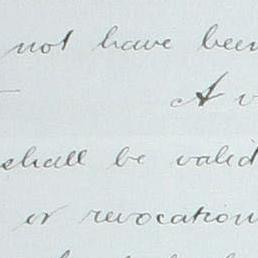 not have been
A v
shall be valid
or revocation